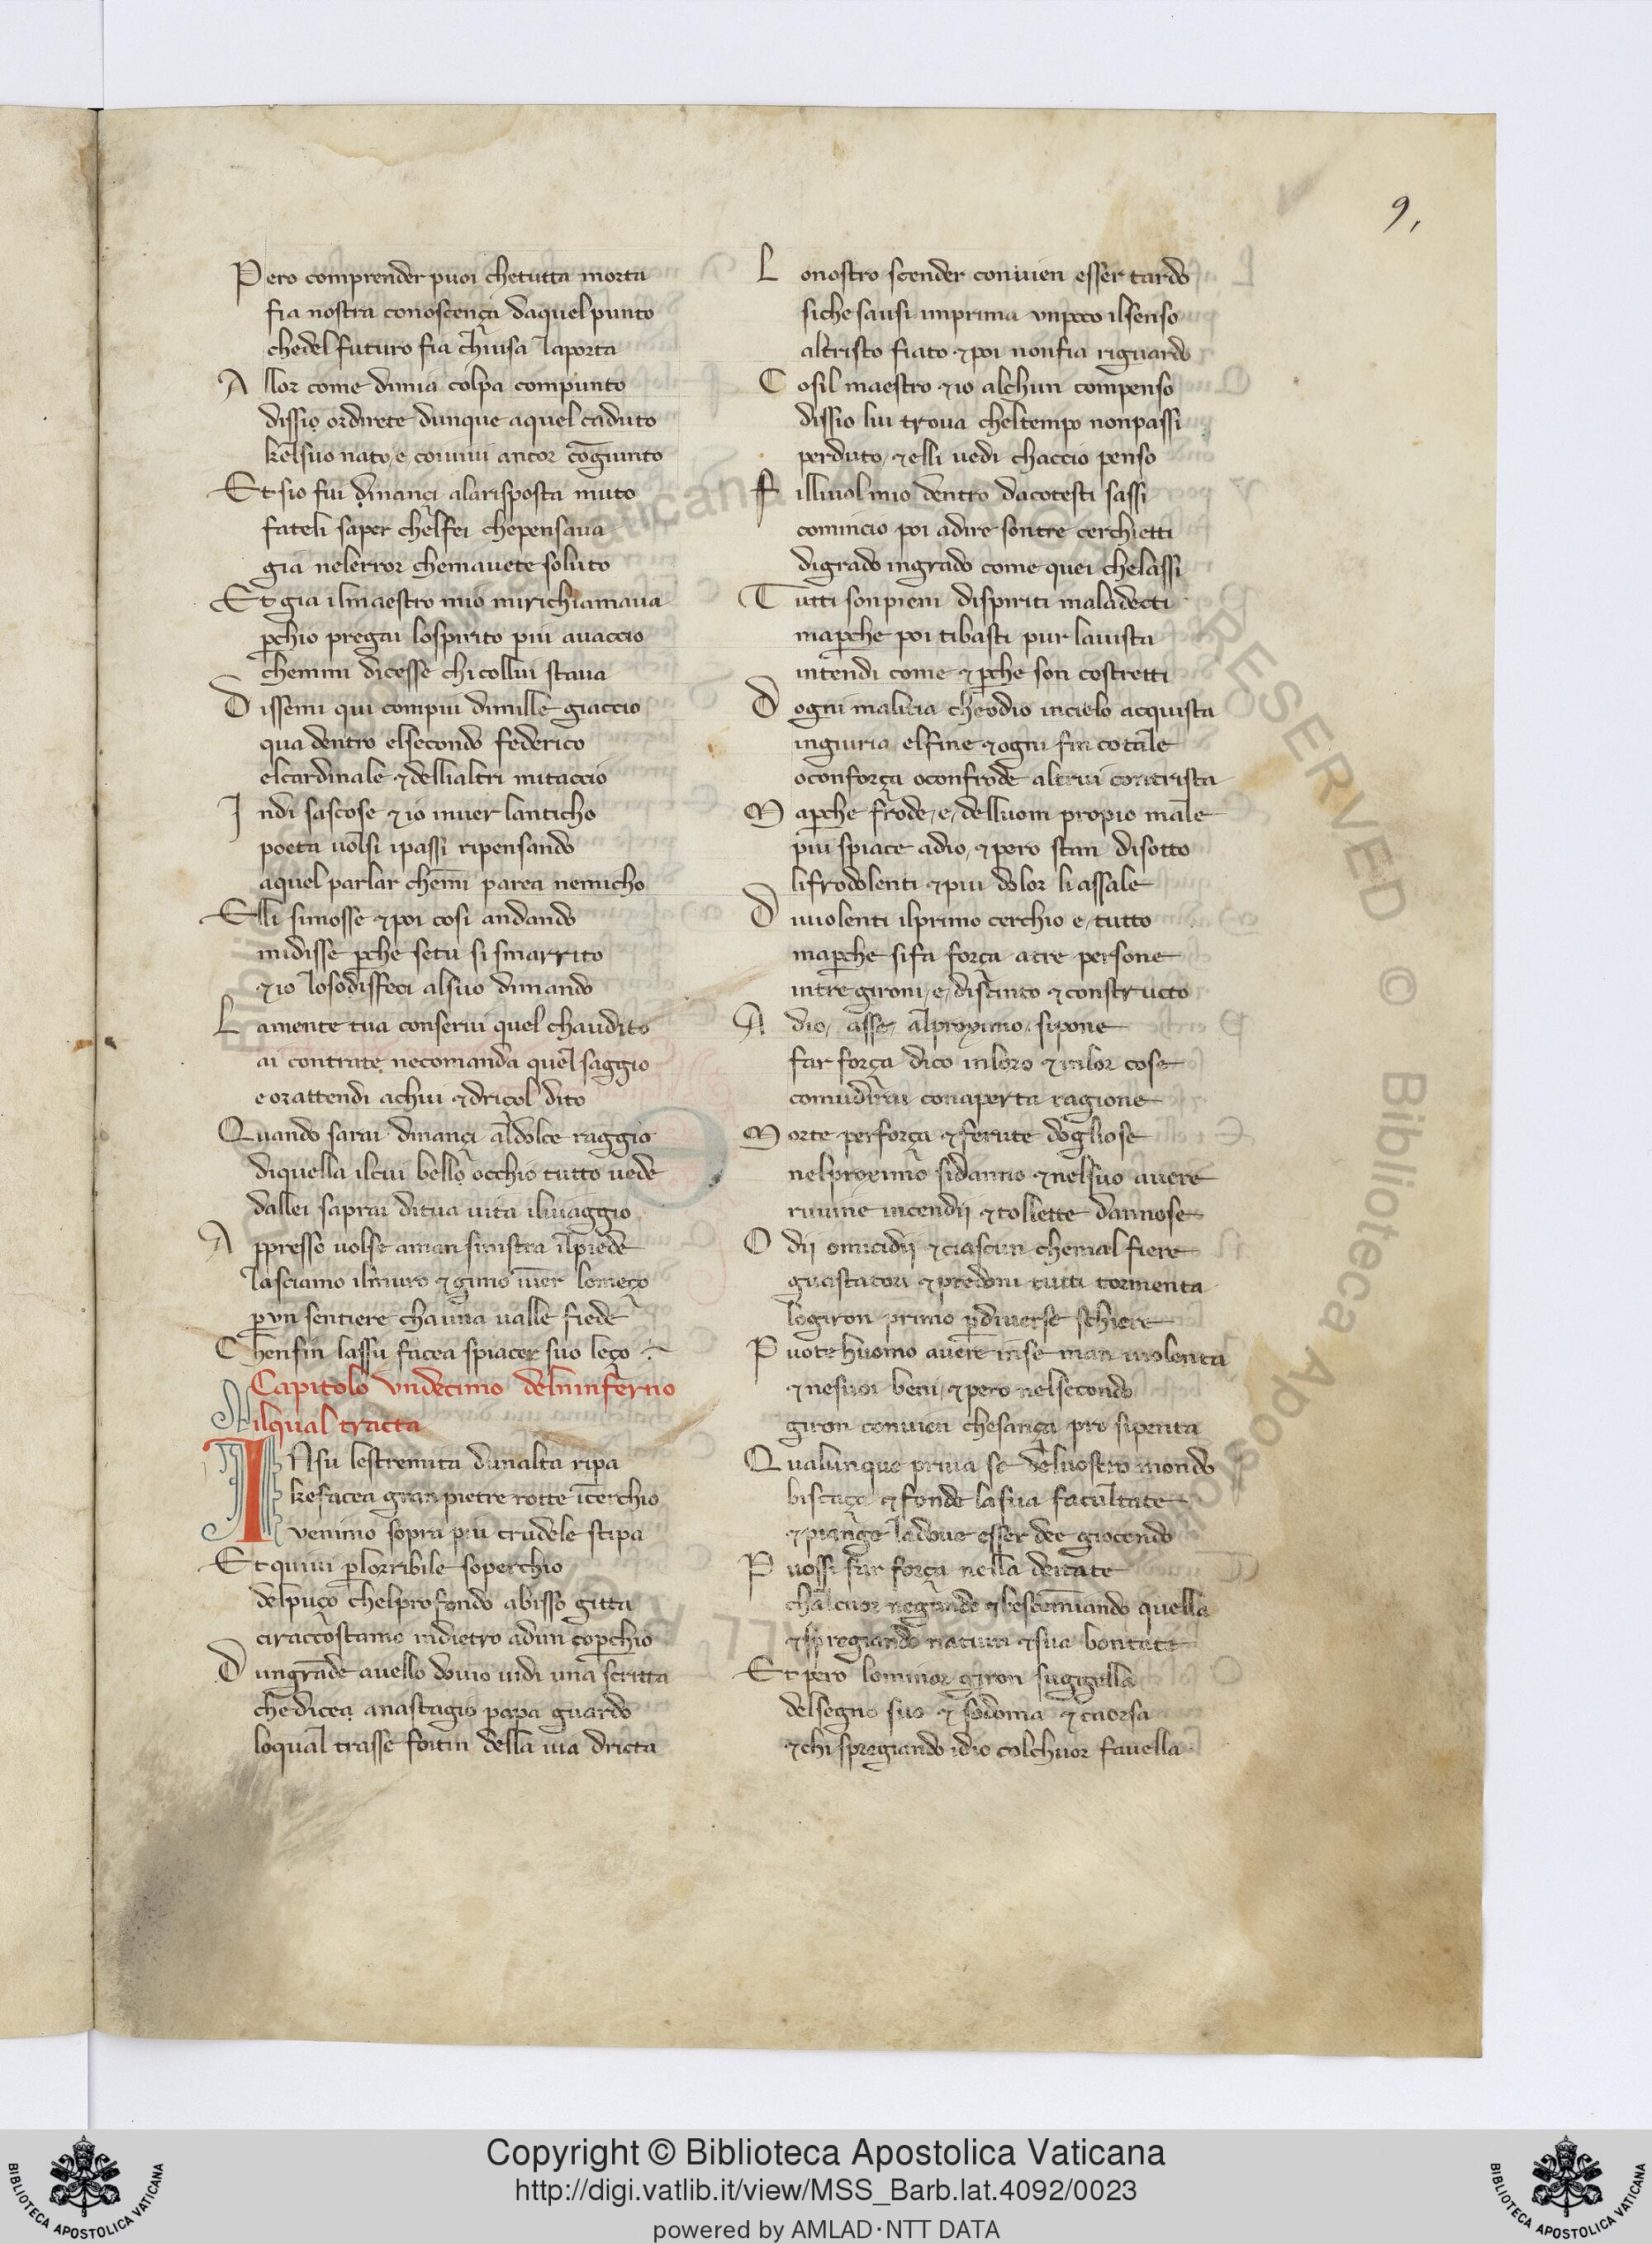 9,
Pero comprender puoi chetutta morta
fia nostra conoscença daquel punto
chedel futuro fia chiusa laporta
Allor come dimia colpa compunto
dissio ordirete dunque aquel caduto
kelsuo nato, e, coiuiui ancor cōgiunto
Et sio fui dināçi alarisposta muto
fateli saper chelfei chepensaua
gia nelerror chemauete soluto
Et gia ilmaestro mio mirichiamaua
ꝑchio pregai lospirito piu auaccio
chemmi dicesse chi collui staua
Dissemi qui compiu dimille giaccio
qua dentro elsecondo federico
elcardinale ⁊ dellialtri mitaccio
Indi sascose ⁊ io inuer lanticho
poeta uolsi ipassi ripensando
aquel parlar chemī parea nemicho
Elli simosse ⁊ poi cosi andando
midisse ꝑche setu si smarrito
⁊ io losodisfeci alsuo dimando
Lamente tua conserui quel chaudito
ai contrate necomanda quel saggio
e or attendi achui ⁊ driçol dito
Quando sarai dināçi aldolce raggio
diquella ilcui bello occhio tutto uede
dallei saprai ditua uita iluiaggio
Appresso uolse aman sinistra ilpiede
lasciamo ilmuro ⁊ gimo iuer lomeço
ꝑ vn sentiere chauna ualle fiede
Chenfin lassu facea spiacer suo leço
Capitolo vndecimo delninferno
ilqual tracta
INsu lestremita dunalta ripa
kefacea gran pietre rotte īcerchio
venimo sopra piu crudele stipa
Et quiui ꝑ lorribile soperchio
delpuço chelprofondo abisso gitta
ciraccostamo indietro adun coꝑchio
Dungrāde auello douio uidi una scritta
che dicea anastagio papa guardo
loqual trasse fotin della uia dricta
Lonostro scender conuien esser tardo
siche sausi imprima vnpoco ilsenso
altristo fiato ⁊ poi nonfia riguardo
Cosil maestro ⁊ io alchun compenso
dissio lui troua cheltempo nonpassi
perduto, ⁊ elli uedi chaccio penso
Filliuol mio dentro dacotesti sassi
comincio poi adire sontre cerchietti
digrado ingrado come quei chelassi
Tutti sonpieni dispiriti maladecti
maꝑche poi tibasti pur lauista
intendi come ⁊ ꝑche son costretti
Dogni malicia cheodio incielo acquista
ingiuria elfine ⁊ ogni fin cotale
oconforça oconfrode altrui contrista
Maꝑche frode, e, delluom propio male
piu spiace adio, ⁊ pero stan disotto
lifrodolenti ⁊ piu dolor li assale
Diuiolenti ilprimo cerchio e, tutto
maꝑche sifa força atre persone
intre gironi, e, distinto ⁊ constructo
Adio, asse, alproximo, sipone
far força dico inloro ⁊ inlor cose
comudirai conaperta ragione
Morte perforça ⁊ ferute dogliose
nelproximo sidanno ⁊ nelsuo auere
ruuine incendij ⁊ tollette dannose
Odij omicidij ⁊ ciascun chemal fiere
guastatori ⁊ predoni tutti tormenta
logiron primo ꝑ diuerse schiere
Puote huomo auere inse man uiolenta
⁊ nesuoi beni, ⁊ pero nelsecondo
giron conuien chesança pro sipenta
Qualunque priua se deluostro mondo
biscaça ⁊ fonde lasua facultate
⁊ piange ladoue esser dee giocondo
Puossi far força nella deitate
chalcuor negando ⁊ bestemmiando quella
⁊ spregiando natura ⁊ sua bontate
Et pero lominor giron sugigella
delsegno suo ⁊ sodoma ⁊ caorsa
⁊ chi spregiando idio colchuor fauella
Copyright © Biblioteca Apostolica Vaticana
http://digi.vatlib.it/view/MSS_Barb.lat.4092/0023
powered by AMLAD·NTT DATA
BIBLIOTECA APOSTOLICA VATICANA
BIBLIOTECA APOSTOLICA VATICANA